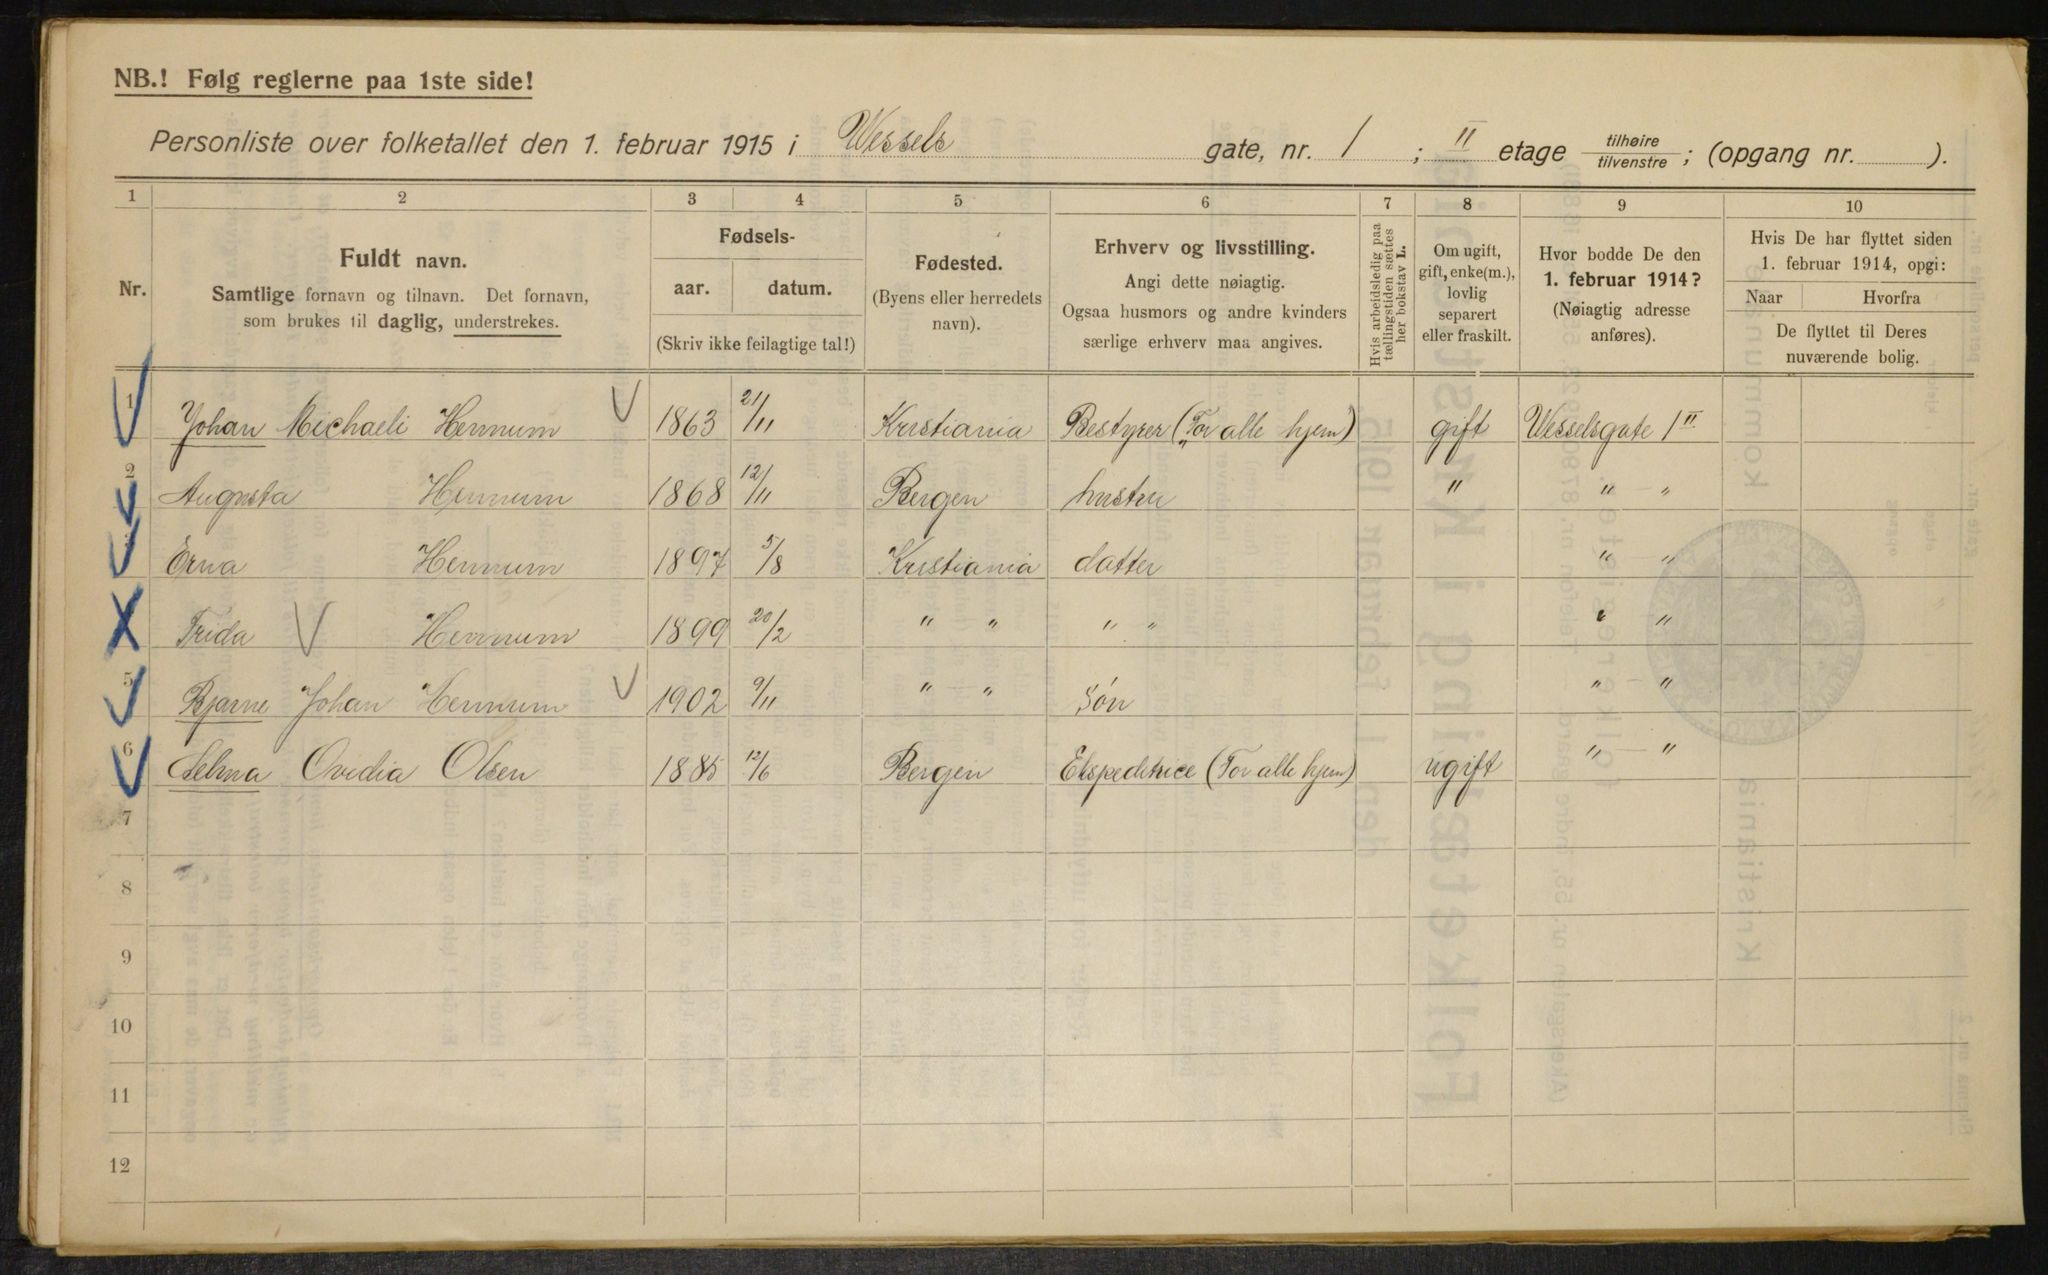 NB.! Følg reglerne paa 1ste side!
Personliste over folketallet den 1. februar 1915 i Wessels gate, nr. 1 ; II etage tilhøire / tilvenstre ; (opgang nr. ).
1 2 3 4 5 6 7 8 9 10
Nr.
Fuldt navn.
Samtlige fornavn og tilnavn. Det fornavn,
som brukes til daglig, understrekes.
Fødsels-
aar. datum.
(Skriv ikke feilagtige tal!)
Fødested.
(Byens eller herredets
navn).
Erhverv og livsstilling.
Angi dette nøiagtig.
Ogsaa husmors og andre kvinders
særlige erhverv maa angives.
Hvis arbeidsledig paa
tællingstiden sættes
her bokstav L.
Om ugift,
gift, enke(m.),
lovlig
separert
eller fraskilt.
Hvor bodde De den
1. februar 1914?
(Nøiagtig adresse
anføres).
Hvis De har flyttet siden
1. februar 1914, opgi:
Naar Hvorfra
De flyttet til Deres
nuværende bolig.
1 Johan Michaeli Hennum 1863 21/11 Kristiania Bestyrer („For alle hjem) gift Wesselsgate 1 II
2 Augusta Hennum 1868 12/11 Bergen hustru " " — "
Erna Hennum 1897 5/8 Kristiania datter " — "
Frida Hennum 1899 20/2 " " " " " "
5 Bjarne Johan Hennum 1902 9/11 " — " Søn " — "
6 Selma Ovidia Olsen 1885 12/6 Bergen Ekspeditrice (For alle hjem) ugift " — "
7
8
9
10
11
12